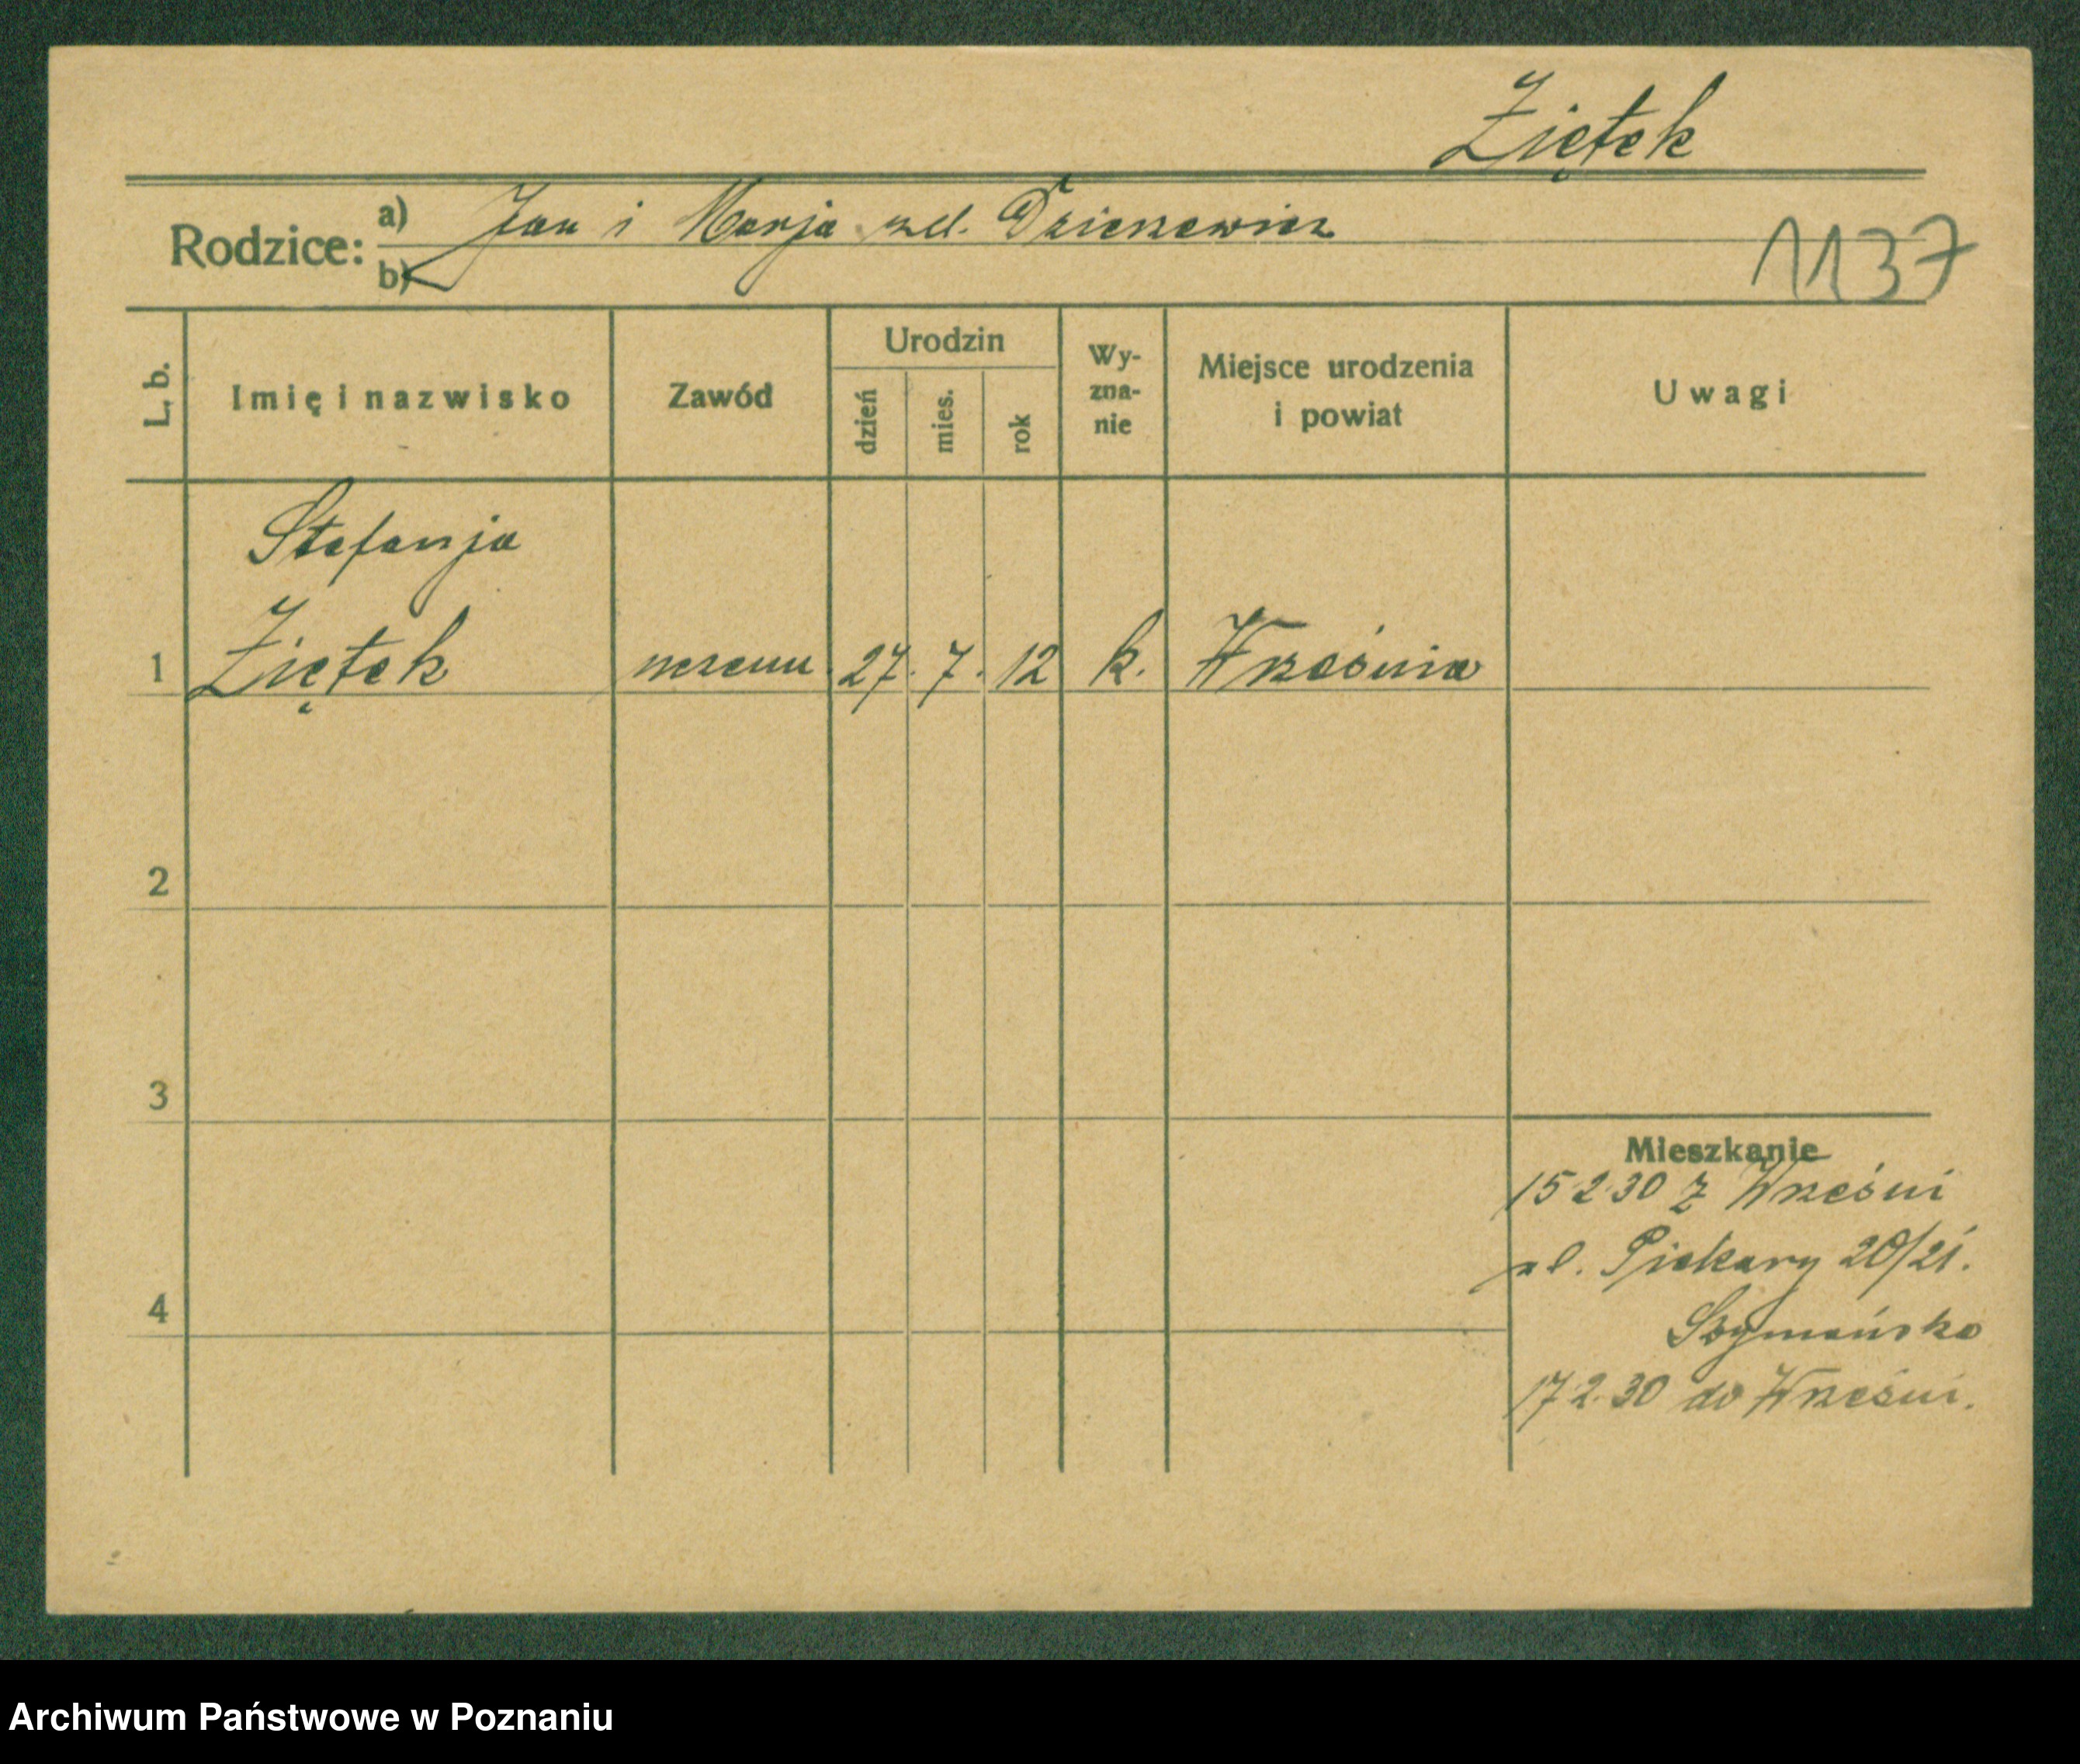 Ziętek
Rodzice: a) Jan i Marja
b)
1137
L. b.
Imię i nazwisko
Zawód
Urodzin
dzień
mies.
rok
Wy-
zna-
nie
Miejsce urodzenia
i powiat
Uwagi
Stefanja
1 Ziętek 27. 7. 12 k. Września
2
3
4
Mieszkanie
15 2 30 z Wrześni
ul. Piekary 20/21.
Szymańska
17 2. 30 do Wrześni.
Archiwum Państwowe w Poznaniu